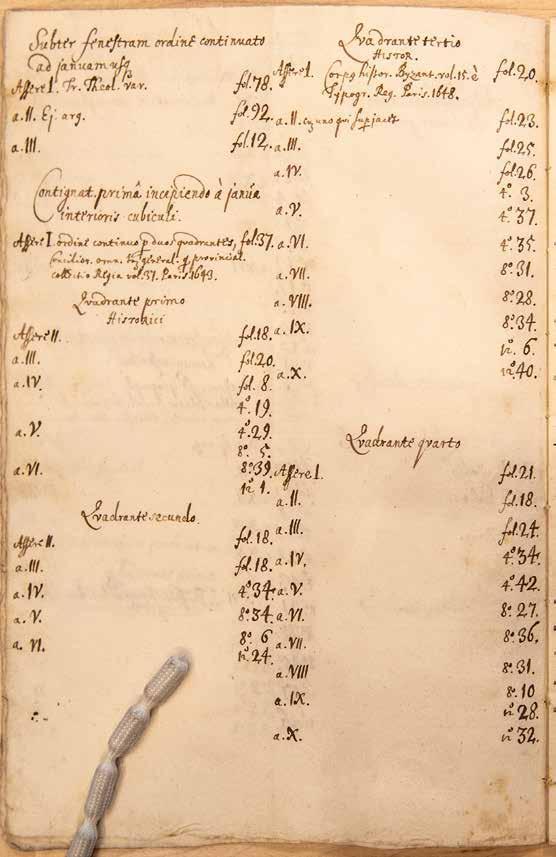 Subter fenestram ordine continuato
ad januam usq
Assere I. Tr. Theol. var. fol. 78.
a. II. Ej. arg. fol. 92.
a. III. fol. 12.
Contignat. primâ incipiendo à januâ
interioris cubiculi.
Assere I. ordine continuo p duos quadrantes, fol. 37.
Concilior. omn. general. q provincial.
collectio Regia vol. 37. Paris. 1643.
Quadrante primo
Historici
Assere II. fol. 18.
a. III. fol. 20.
a. IV. fol. 8.
4°. 19.
a. V. 4°. 29.
8°. 5.
a. VI. 8°. 39.
12°. 1.
Quadrante secundo.
Assere II. fol. 18.
a. III. fol. 18.
a. IV. 4°. 34.
a. V. 8°. 34.
a. VI. 8°. 6
12°. 24.
Quadrante tertio
Histor.
Assere I. Corpq histor. Byzant. vol. 15. è fol. 20.
Typogr. Reg. Paris. 1648.
a. II. cu uno qui superjacet fol. 23.
a. III. fol. 25.
a. IV. fol. 26.
4°. 3.
a. V. 4°. 37.
a. VI. 4°. 35.
a. VII. 8°. 31.
a. VIII. 8°. 28.
a. IX. 8°. 34.
12°. 6.
a. X. 12°. 40.
Quadrante quarto
Assere I. fol. 21.
a. II. fol. 18.
a. III. fol. 24.
a. IV. 4°. 34.
a. V. 4°. 42.
a. VI. 8°. 27.
a. VII. 8°. 36.
a. VIII 8°. 31.
a. IX. 8°. 10
12°. 28.
a. X. 12°. 32.